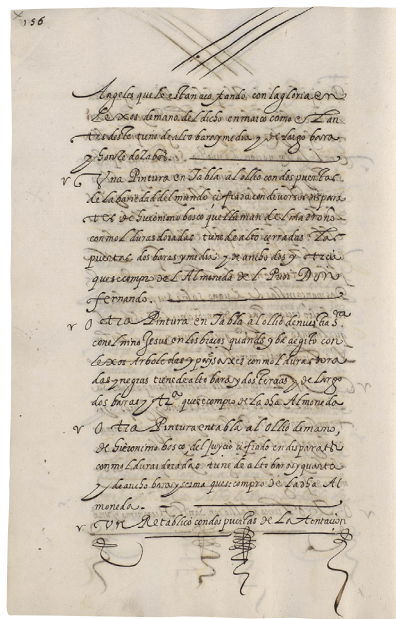 156
Angeles que le estan coronando, con la gloria en
lexos de mano del dicho en marco como el an
tes deste tiene de alto bara y media y de largo bara
y
v Una Pintura en Tabla al ollio con dos puertas
de la bariedad del mundo cifrada con diversos dispara
tes de hieronimo bosco que llaman del madroño
con molduras doradas tiene de alto cerradas las
puertas dos baras y media y de ancho dos y tercia
que se compro de l Almoneda de l Prior Don
fernando.
v Otra Pintura en Tabla al ollio de nuestra S.ra
con el nino Jesus en los bracos quando yba a egito con
lexos Arboledas y paysaxes con molduras dora
das y negras tiene de alto bara y dos tercias y de largo
dos baras y que se compro de la dha Almoneda
v Otra Pintura en tabla al ollio de mano,
de hieronimo bosco, del juycio cifrado en disparates
con molduras doradas tiene de alto bara y quarta
y de ancho bara y sesma que se compro de la dha Al
moneda.
v Un Retablico con dos puertas de La tentacion